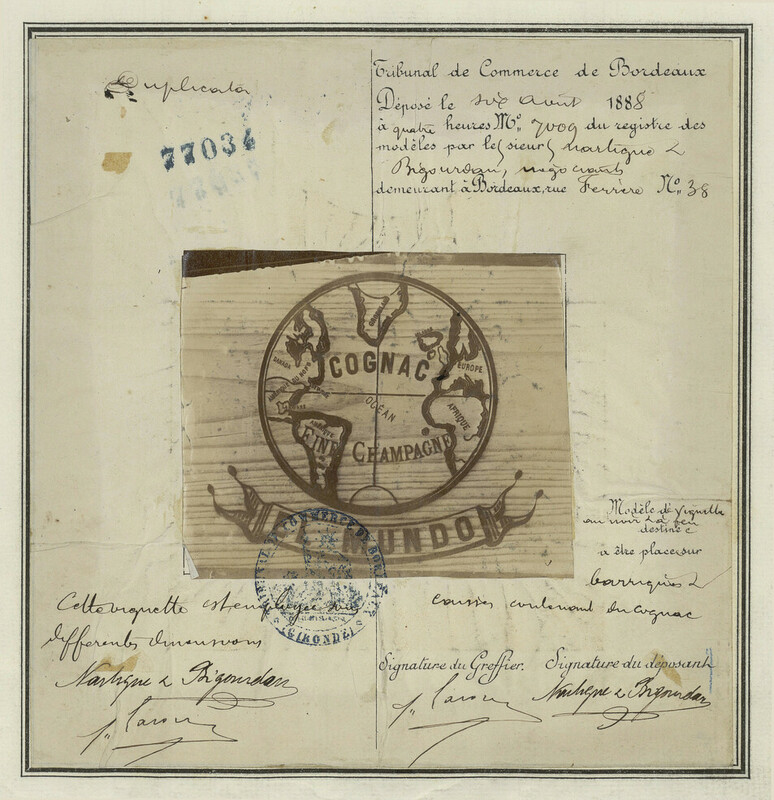 Duplicata
77034
Tribunal de Commerce de Bordeaux
Déposé le six août 1888
à quatre heures Nº 7009 du registre des
modèles par les sieurs Martigue &
Bigourdan, négociants
demeurant à Bordeaux, rue Ferrère Nº 38
GROENLAND
CANADA
EUROPE
COGNAC
OCÉAN
AFRIQUE
FINE CHAMPAGNE
MUNDO
TRIBUNAL DE COMMERCE DE BORDEAUX
(GIRONDE)
Modèle de vignette
au noir & à feu
destinée
à être placer sur
barriques &
caisses contenant du cognac
Cette vignette est employée sous
différentes dimensions
Martigue & Bigourdan
Signature du Greffier.
Signature du déposant
Martigue & Bigourdan